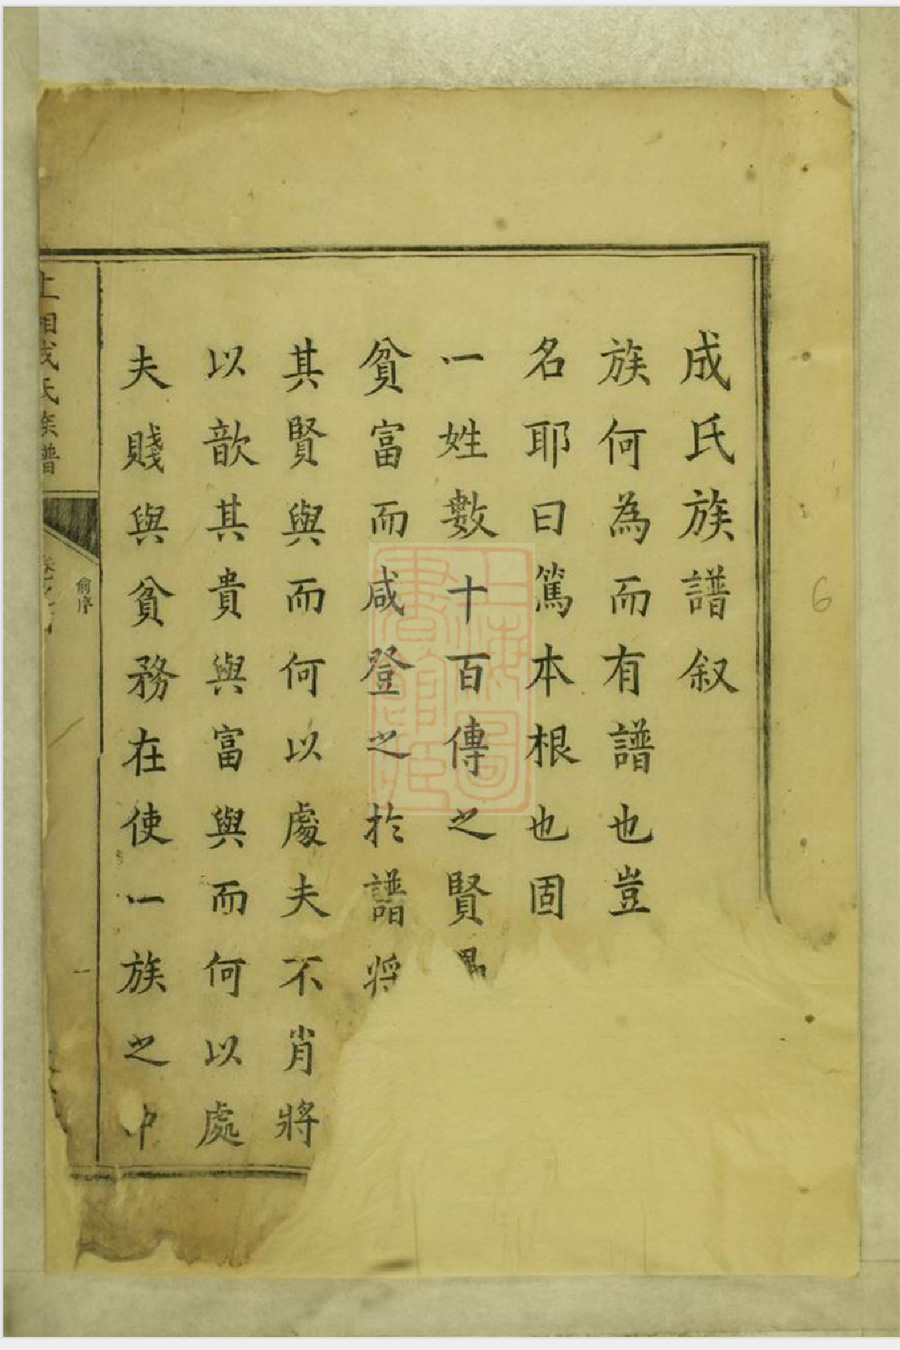 成氏族譜叙
族何為而有譜也豈
名耶曰篤本根也固
一姓數十百傳之賢
貧富而咸登之於譜將
其賢與而何以處夫不肖將
以歆其貴與富與而何以處
夫賤與貧務在使一族之中
上湘成氏族譜
俞序
一
上海圖書館藏
6